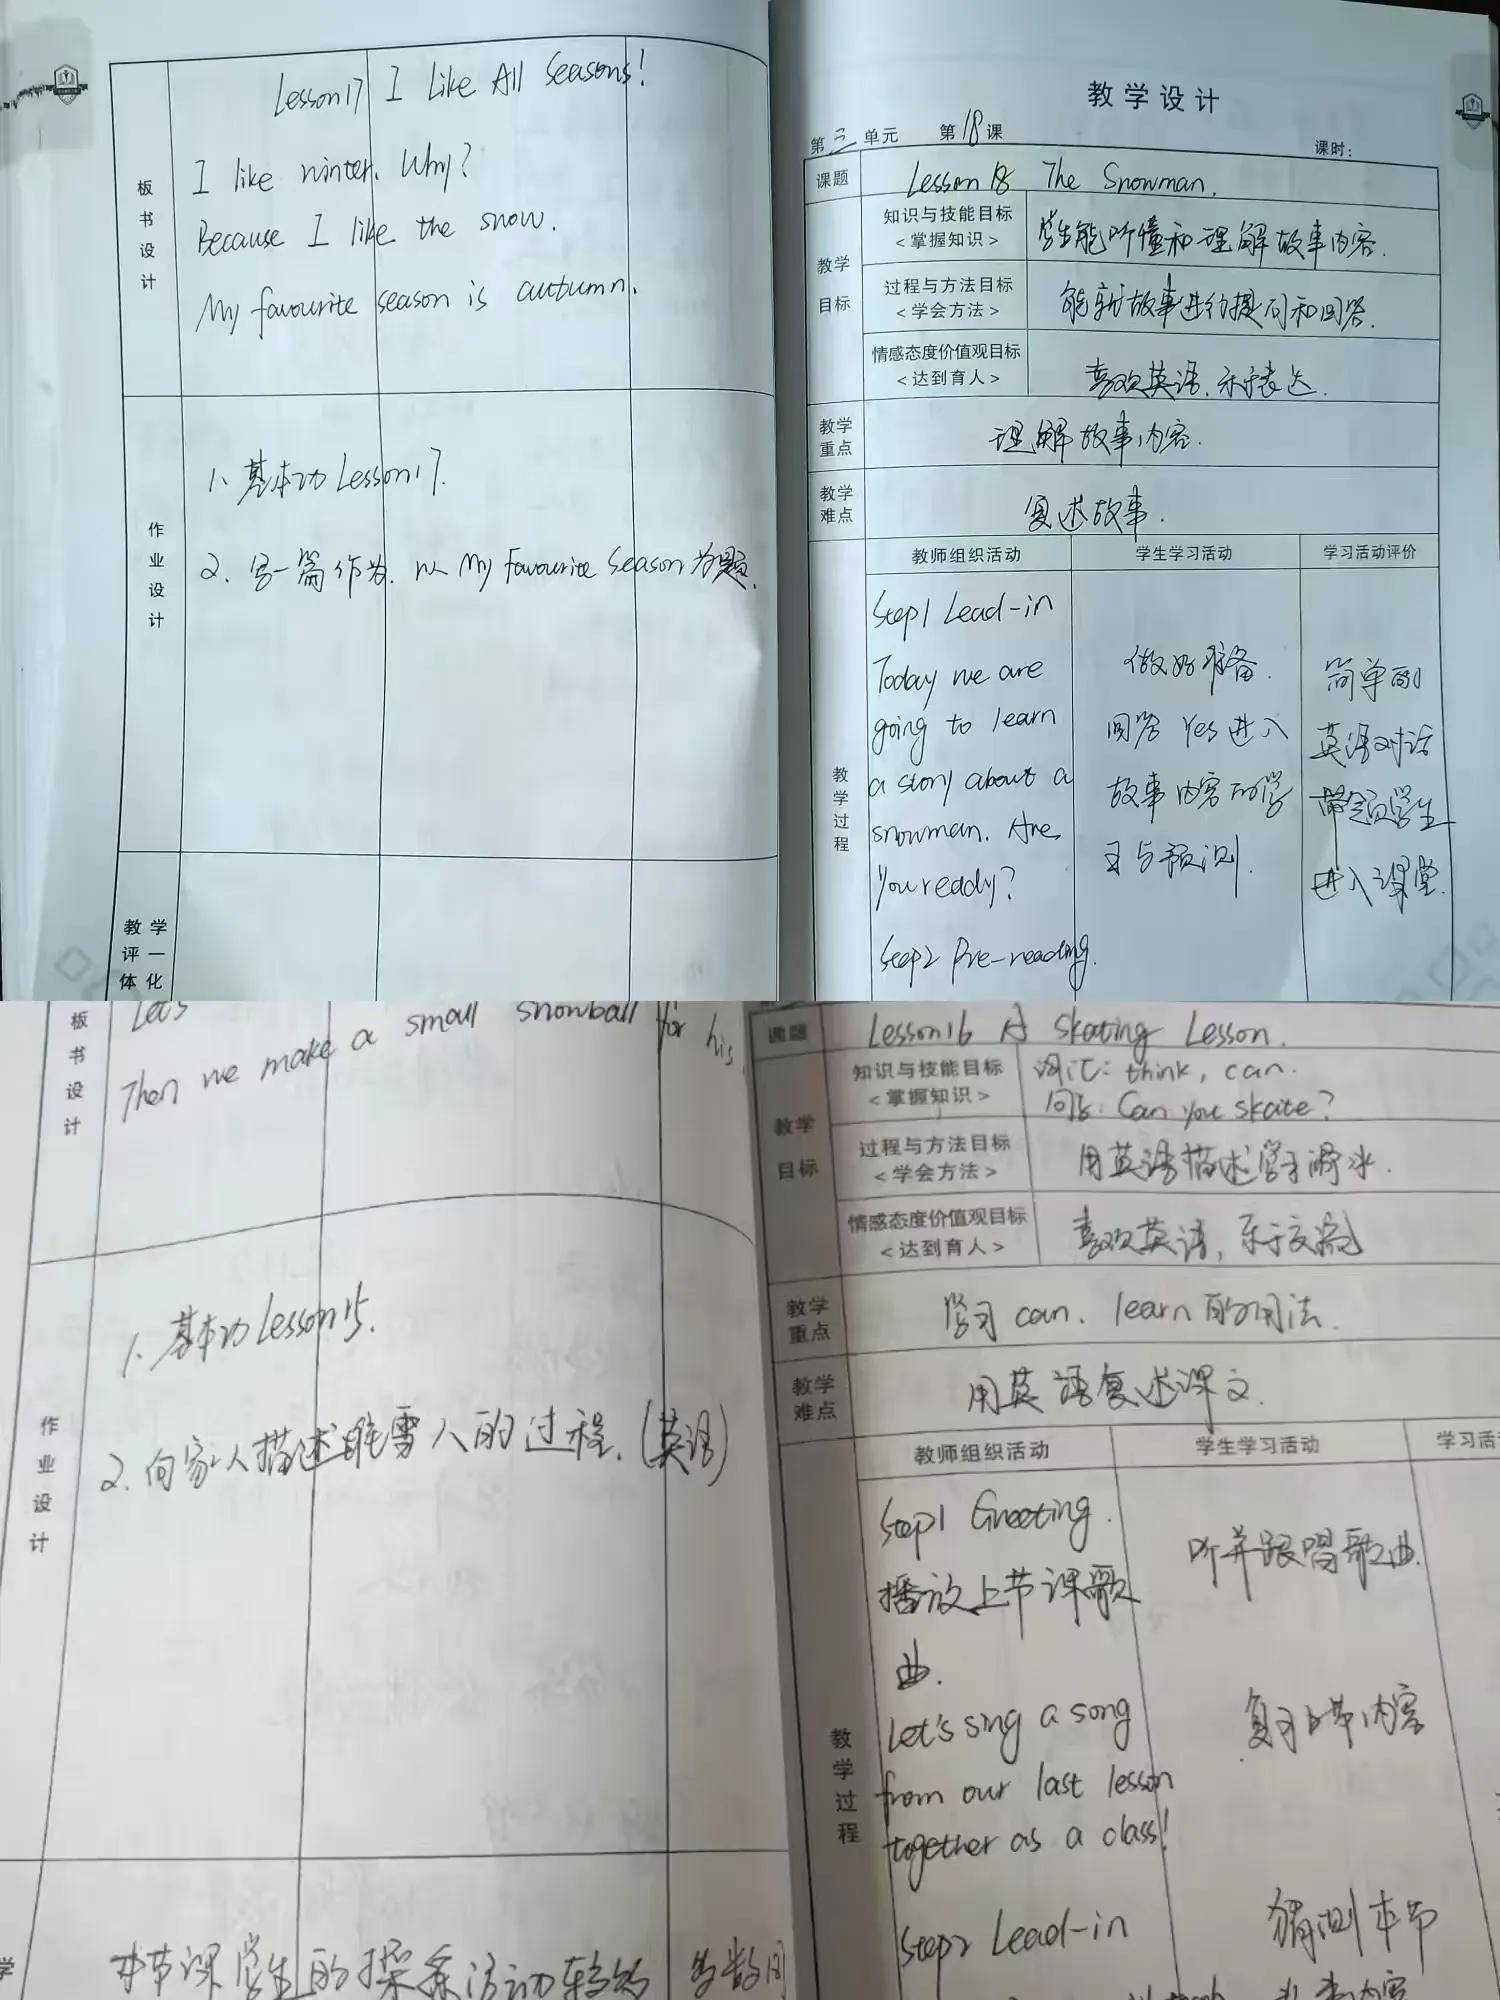 Lesson 17 I Like All Seasons!
板书设计
I like winter. Why?
Because I like the snow.
My favourite season is autumn.
作业设计
1、基本功Lesson17.
2、写一篇作为，以My Favourite Season为题.
教学评一体化
教学设计
第三单元 第18课 课时：
课题 Lesson 18 The Snowman.
教学目标
知识与技能目标
<掌握知识>
学生能听懂和理解故事内容.
过程与方法目标
<学会方法>
能就故事进行提问和回答.
情感态度价值观目标
<达到育人>
喜欢英语，乐于表达.
教学重点 理解故事内容.
教学难点 复述故事.
教学过程
教师组织活动 学生学习活动 学习活动评价
Step1 Lead-in
Today we are
going to learn
a story about a
snowman. Are
you ready?
Step2 Pre-reading.
做好准备.
回答 Yes 进入
故事内容的学
习与预测.
简单的
英语对话
带领学生
进入课堂.
板书设计
Let's
Then we make a small snowball for his
作业设计
1、基本功Lesson15.
2、向家人描述堆雪人的过程.(英语)
学
本节课学生的探索活动较多 多数同
课题 Lesson16 A Skating Lesson.
教学目标
知识与技能目标
<掌握知识>
词汇: think, can.
问答: Can you skate?
过程与方法目标
<学会方法>
用英语描述学习滑冰.
情感态度价值观目标
<达到育人>
喜欢英语，乐于交流
教学重点 学习 can、learn 的用法.
教学难点 用英语复述课文.
教学过程
教师组织活动 学生学习活动 学习活
Step1 Greeting.
播放上节课歌
曲.
Let's sing a song
from our last lesson
together as a class!
Step2 Lead-in
听并跟唱歌曲.
复习上节内容
猜测本节
内容